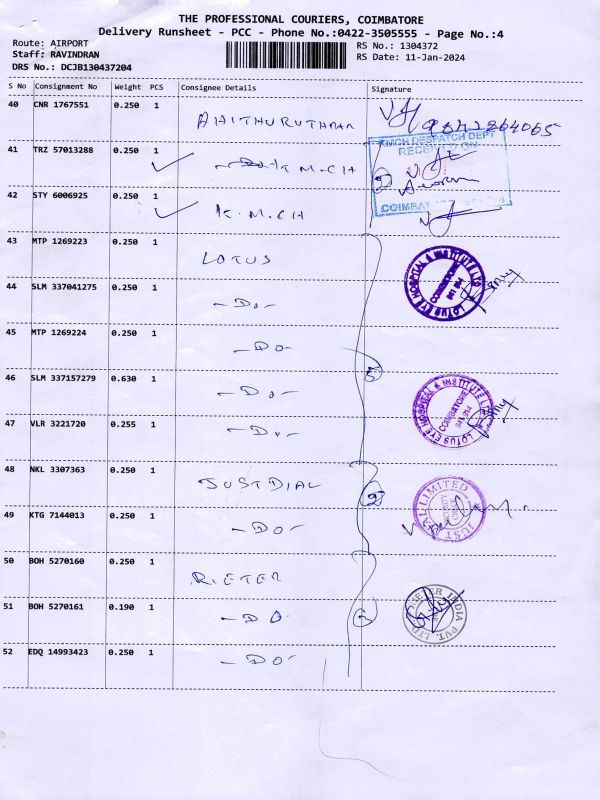 THE PROFESSIONAL COURIERS, COIMBATORE
Delivery Runsheet - PCC - Phone No.:0422-3505555 - Page No.:4
Route: AIRPORT
Staff: RAVINDRAN
DRS No.: DCJB130437204
RS No.: 1304372
RS Date: 11-Jan-2024
S No Consignment No Weight PCS Consignee Details Signature
40 CNR 1767551 0.250 1
41 TRZ 57013288 0.250 1 K.M.CH
KMCH DESPATCH DEPT
RECEIVED ON
42 STY 6006925 0.250 1 K.M.CH
43 MTP 1269223 0.250 1 LOTUS
LOTUS EYE HOSPITAL & INSTITUTE LTD
COIMBATORE
641 014
44 SLM 337041275 0.250 1 -Do-
45 MTP 1269224 0.250 1 -Do-
5
46 SLM 337157279 0.630 1 -Do-
LOTUS EYE HOSPITAL & INSTITUTE LTD
COIMBATORE
641 014
47 VLR 3221720 0.255 1 -Do-
48 NKL 3307363 0.250 1 JUSTDIAL
2
JUST DIAL LIMITED
49 KTG 7144013 0.250 1 -Do-
50 BOH 5270160 0.250 1 RIETER
51 BOH 5270161 0.190 1 -Do-
3
RIETER INDIA PVT. LTD
52 EDQ 14993423 0.250 1 -Do-